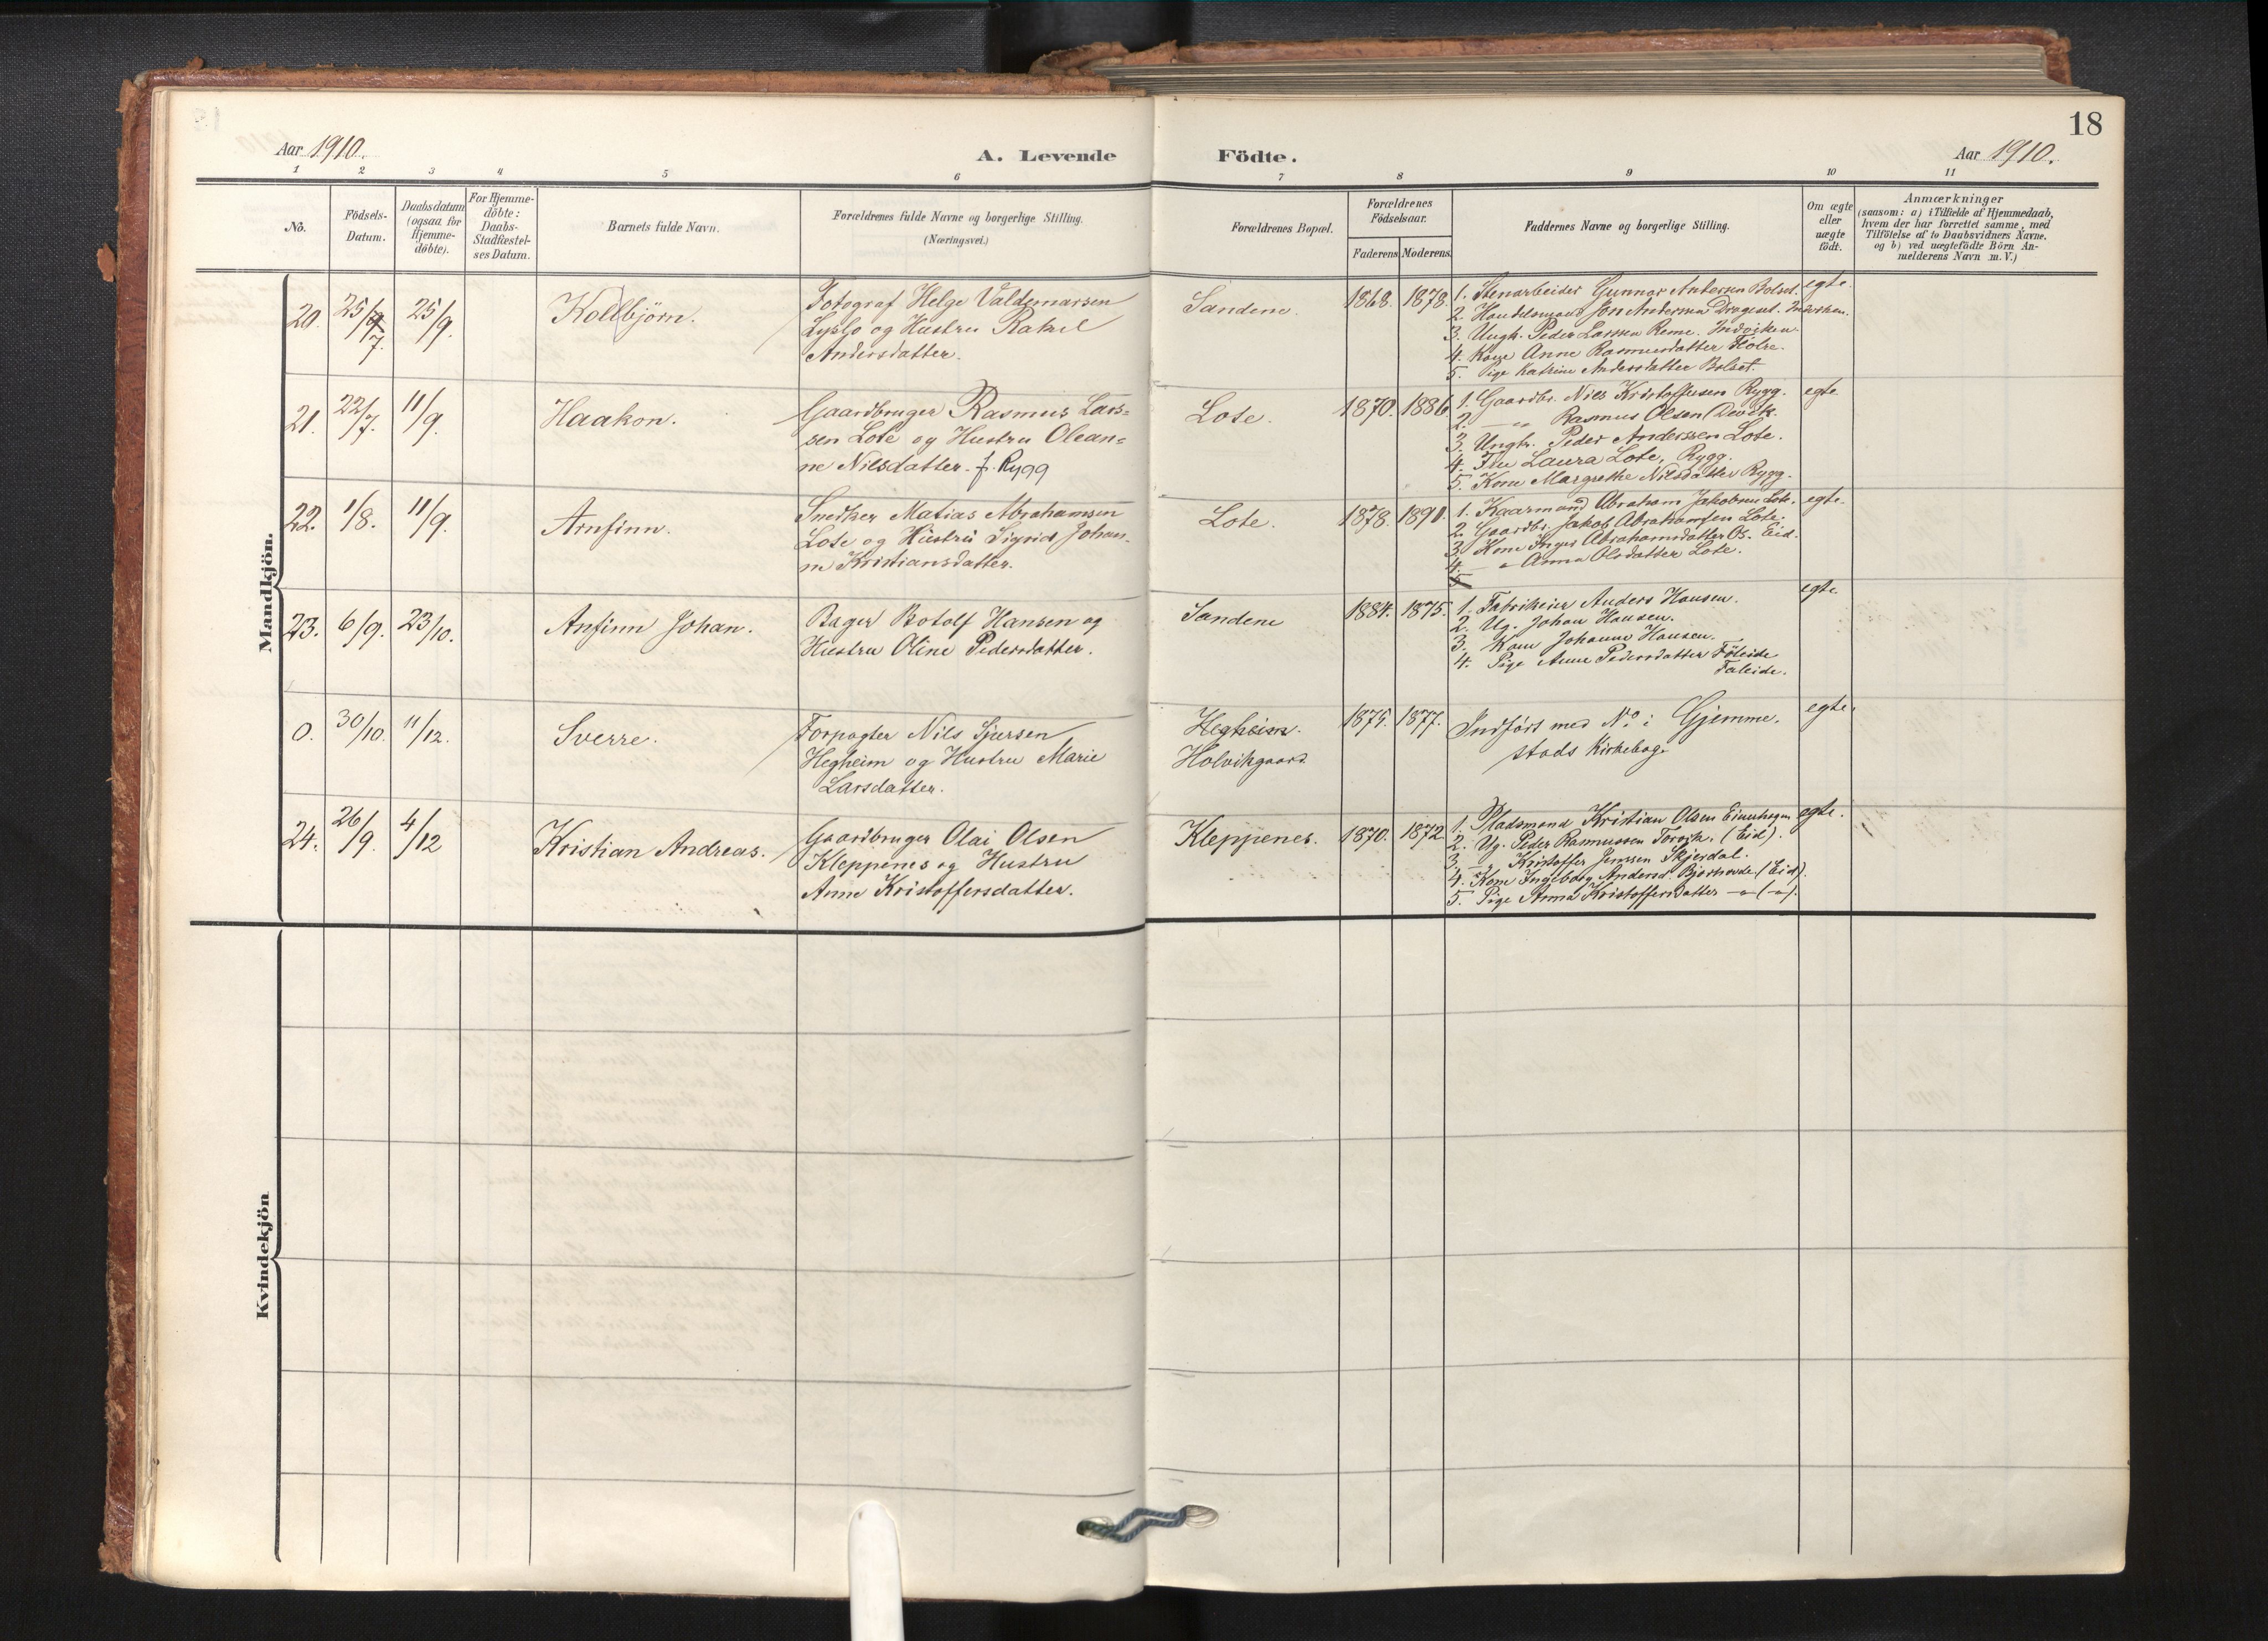 18
Aar 1910.
A. Levende Födte.
Aar 1910.
1 2 3 4 5 6 7 8 9 10 11
No.
Födsels-Datum.
Daabsdatum (ogsaa for Hjemme-döbte).
For Hjemme-döbte: Daabs-Stadfæstel-ses Datum.
Barnets fulde Navn.
Forældrenes fulde Navne og borgerlige Stilling.
(Næringsvei.)
Forældrenes Bopæl.
Forældrenes Födselsaar.
Faderens Moderens.
Faddernes Navne og borgerlige Stilling.
Om ægte eller uægte födt.
Anmærkninger
(saasom: a) i Tilfælde af Hjemmedaab,
hvem der har forrettet samme, med
Tilföielse af to Daabsvidners Navne,
og b) ved uægtefödte Börn An-
melderens Navn m. V.)
Mandkjön.
20. 25/7 25/9. Kolbjörn.
Fotograf Helge Valdemarsen
Lyslo og Hustru Rakel
Andersdatter.
Sandene. 1868. 1878.
1. Stenarbeider Gunnar Andersen Bolset.
2. Handelsmand Jon Andersen Drageset. Indviken.
3. Ungk. Peder Larssen Reme. Indviken.
4. Kone Anne Rasmusdatter
5. Pige Katrine Andersdatter Bolset.
egte.
21. 22/7. 11/9. Haakon.
Gaardbruger Rasmus Lars=
sen Lote og Hustru Olean=
ne Nilsdatter. f. Rygg
Lote. 1870. 1886.
1. Gaardbr. Nils Kristoffersen Rygg.
2. — " Rasmus Olsen Devik.
3. Ungk. Peder Anderssen Lote.
4. Fru Laura Lote, Rygg.
5. Kone Margrethe Nilsdatter Rygg.
egte
22. 1/8. 11/9. Arnfinn.
Snedker Matias Abrahamsen
Lote og Hustru Sigrid Johan-
ne Kristiansdatter.
Lote. 1878. 1890.
1. Kaarmand Abraham Jakobsen Lote.
2. Gaardbr. Jakob Abrahamsen Lote.
3. Kone Inger Abrahamsdatter Os. Eid.
4. — " Anna Olsdatter Lote.
5
egte.
23. 6/9. 23/10. Anfinn Johan.
Bager Botolf Hansen og
Hustru Oline Pedersdatter.
Sandene 1884. 1875.
1. Fabrikeier Anders Hansen.
2. Ug. Johan Hansen.
3. Kone Johanne Hansen.
4. Pige Anne Pedersdatter Föleide
Faleide.
egte.
0. 30/10. 11/12. Sverre.
Forpagter Nils Sjursen
Hegheim og Hustru Marie
Larsdatter.
Hegheim.
Holvikgaard.
1875. 1877.
Indfört med No. i Gjemme-
stads Kirkebog.
egte.
24. 26/9. 4/12 Kristian Andreas.
Gaardbruger Olai Olsen
Kleppenes og Hustru
Anne Kristoffersdatter.
Kleppenes. 1870. 1872
1. Pladsmand Kristian Olsen Einehagen
2. Ug. Peder Rasmussen Torvik. (Eid).
3. — " Kristoffer Jenssen Skjerdal.
4. Kone Ingeborg Andersd. (Eid).
5. Pige Anna Kristoffersdatter — " — (—").
egte.
Kvindekjön